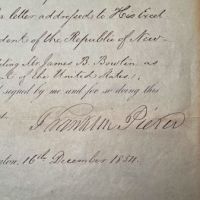 r letter addressed to His Excel
dent of the Republic of New
ting Mr. James B. Bowlin as
t of the United States;
d signed by me and for so doing this
t.
Franklin Pierce
gton, 16th December 1854.